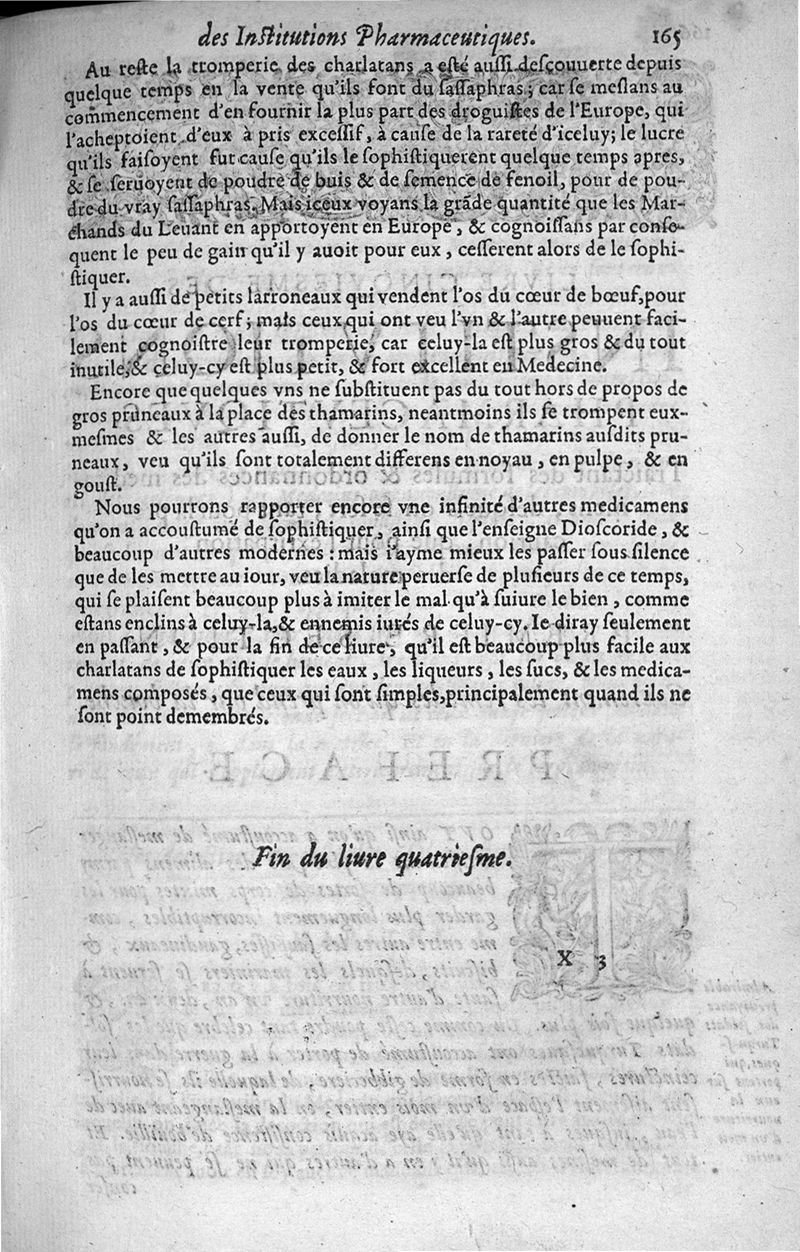 des Inſtitutions Pharmaceutiques. 165
Au reſte la tromperie des charlatans a eſté auſſi deſcouuerte depuis
quelque temps en la vente qu'ils font du ſaſſaphras; car ſe meſlans au
commencement d'en fournir la plus part des droguiſtes de l'Europe, qui
l'acheptoient d'eux à pris exceſſif, à cauſe de la rareté d'iceluy; le lucre
qu'ils faiſoyent fut cauſe qu'ils le ſophiſtiquerent quelque temps apres,
& ſe ſeruoyent de poudre de buis & de ſemence de fenoil, pour de pou-
dre du vray ſaſſaphras. Mais iceux voyans la grãde quantité que les Mar-
chands du Leuant en apportoyent en Europe, & cognoiſſans par conſe-
quent le peu de gain qu'il y auoit pour eux, ceſſerent alors de le ſophi-
ſtiquer.
Il y a auſſi de petits larroneaux qui vendent l'os du cœur de bœuf, pour
l'os du cœur de cerf; mais ceux qui ont veu l'vn & l'autre peuuent faci-
lement cognoiſtre leur tromperie, car celuy-la eſt plus gros & du tout
inutile, & celuy-cy eſt plus petit, & fort excellent en Medecine.
Encore que quelques vns ne ſubſtituent pas du tout hors de propos de
gros pruneaux à la place des thamarins, neantmoins ils ſe trompent eux-
meſmes & les autres auſſi, de donner le nom de thamarins auſdits pru-
neaux, veu qu'ils ſont totalement differens en noyau, en pulpe, & en
gouſt.
Nous pourrons rapporter encore vne infinité d'autres medicamens
qu'on a accouſtumé de ſophiſtiquer, ainſi que l'enſeigne Dioſcoride, &
beaucoup d'autres modernes: mais i'ayme mieux les paſſer ſous ſilence
que de les mettre au iour, veu la nature peruerſe de pluſieurs de ce temps,
qui ſe plaiſent beaucoup plus à imiter le mal qu'à ſuiure le bien, comme
eſtans enclins à celuy-la, & ennemis iurés de celuy-cy. Ie diray ſeulement
en paſſant, & pour la fin de ce liure, qu'il eſt beaucoup plus facile aux
charlatans de ſophiſtiquer les eaux, les liqueurs, les ſucs, & les medica-
mens compoſés, que ceux qui ſont ſimples, principalement quand ils ne
ſont point demembrés.
Fin du liure quatrieſme.
X 3